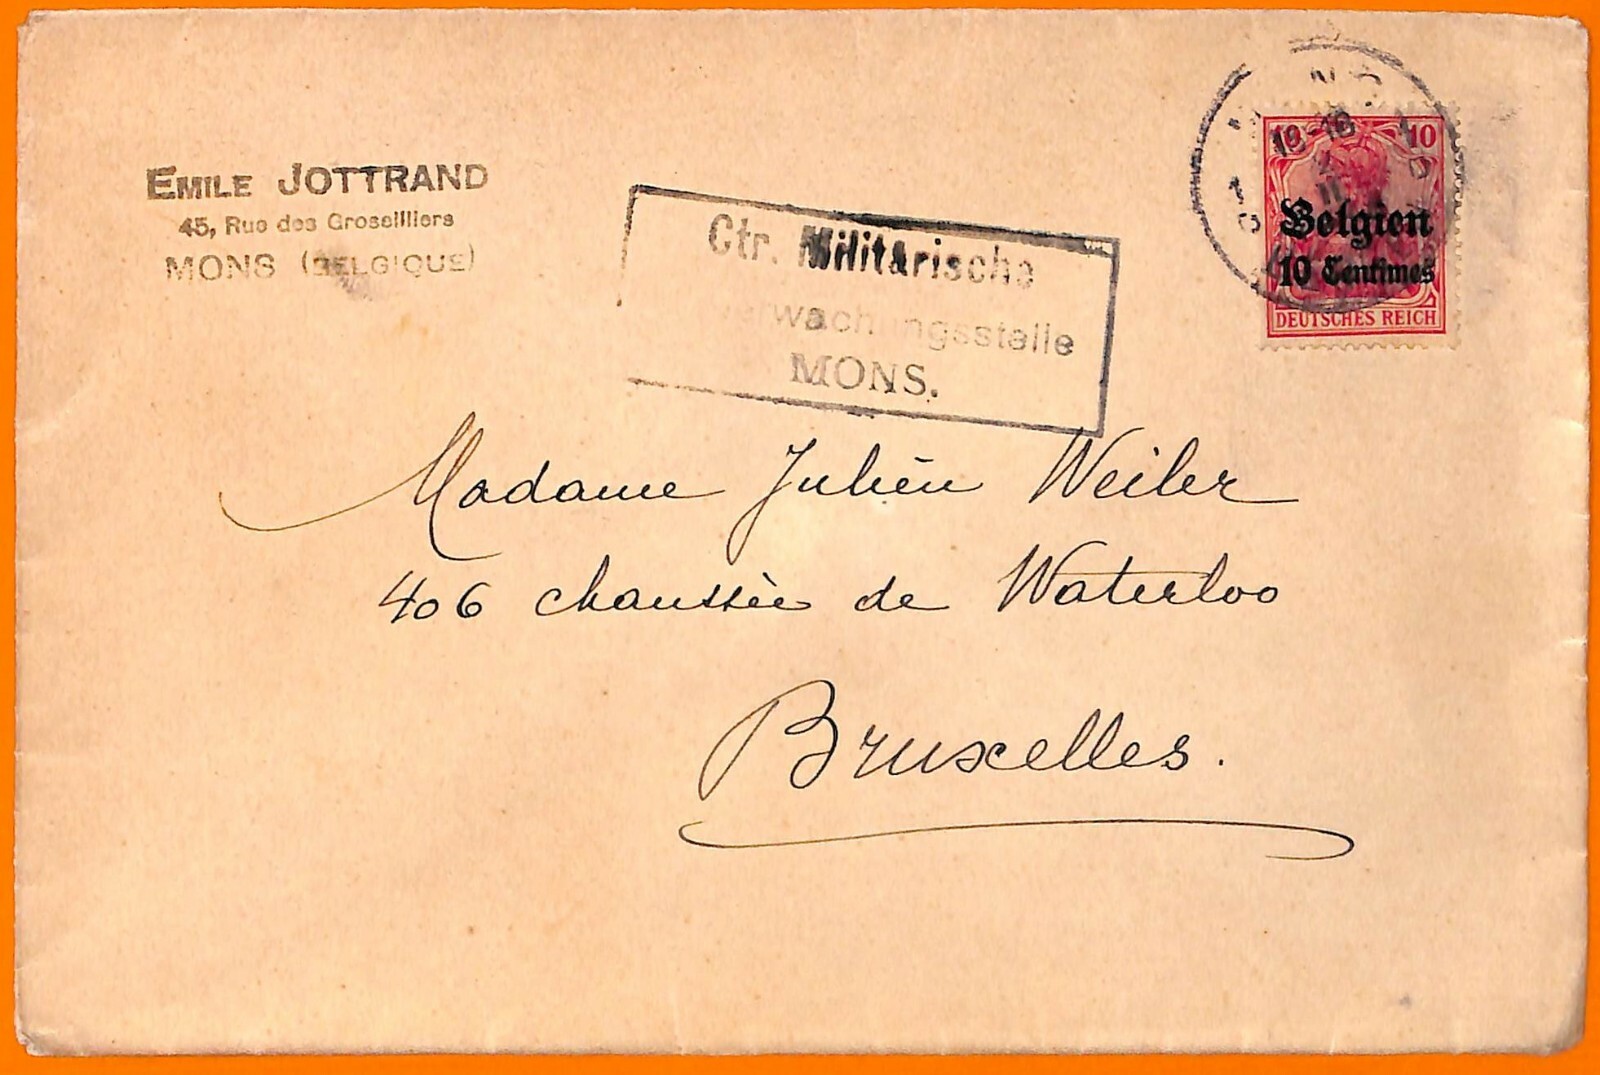 EMILE JOTTRAND
45, Rue des Groseilliers
MONS (BELGIQUE)
Ctr. Militärische
erwachungsstelle
MONS.
10 10
Belgien
10 Centimes
DEUTSCHES REICH
Madame Julien Weiler
406 chaussée de Waterloo
Bruxelles.